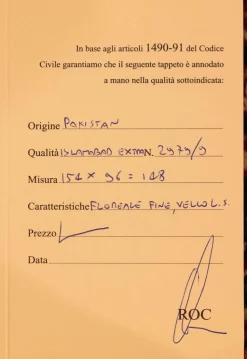 In base agli articoli 1490-91 del Codice
Civile garantiamo che il seguente tappeto è annodato
a mano nella qualità sottoindicata:
Origine PAKISTAN
Qualità ISLAMABAD EXTRA N. 2979/9
Misura 154 x 96 = 148
Caratteristiche FLOREALE FINE, VELLO L.S.
Prezzo
Data
ROC